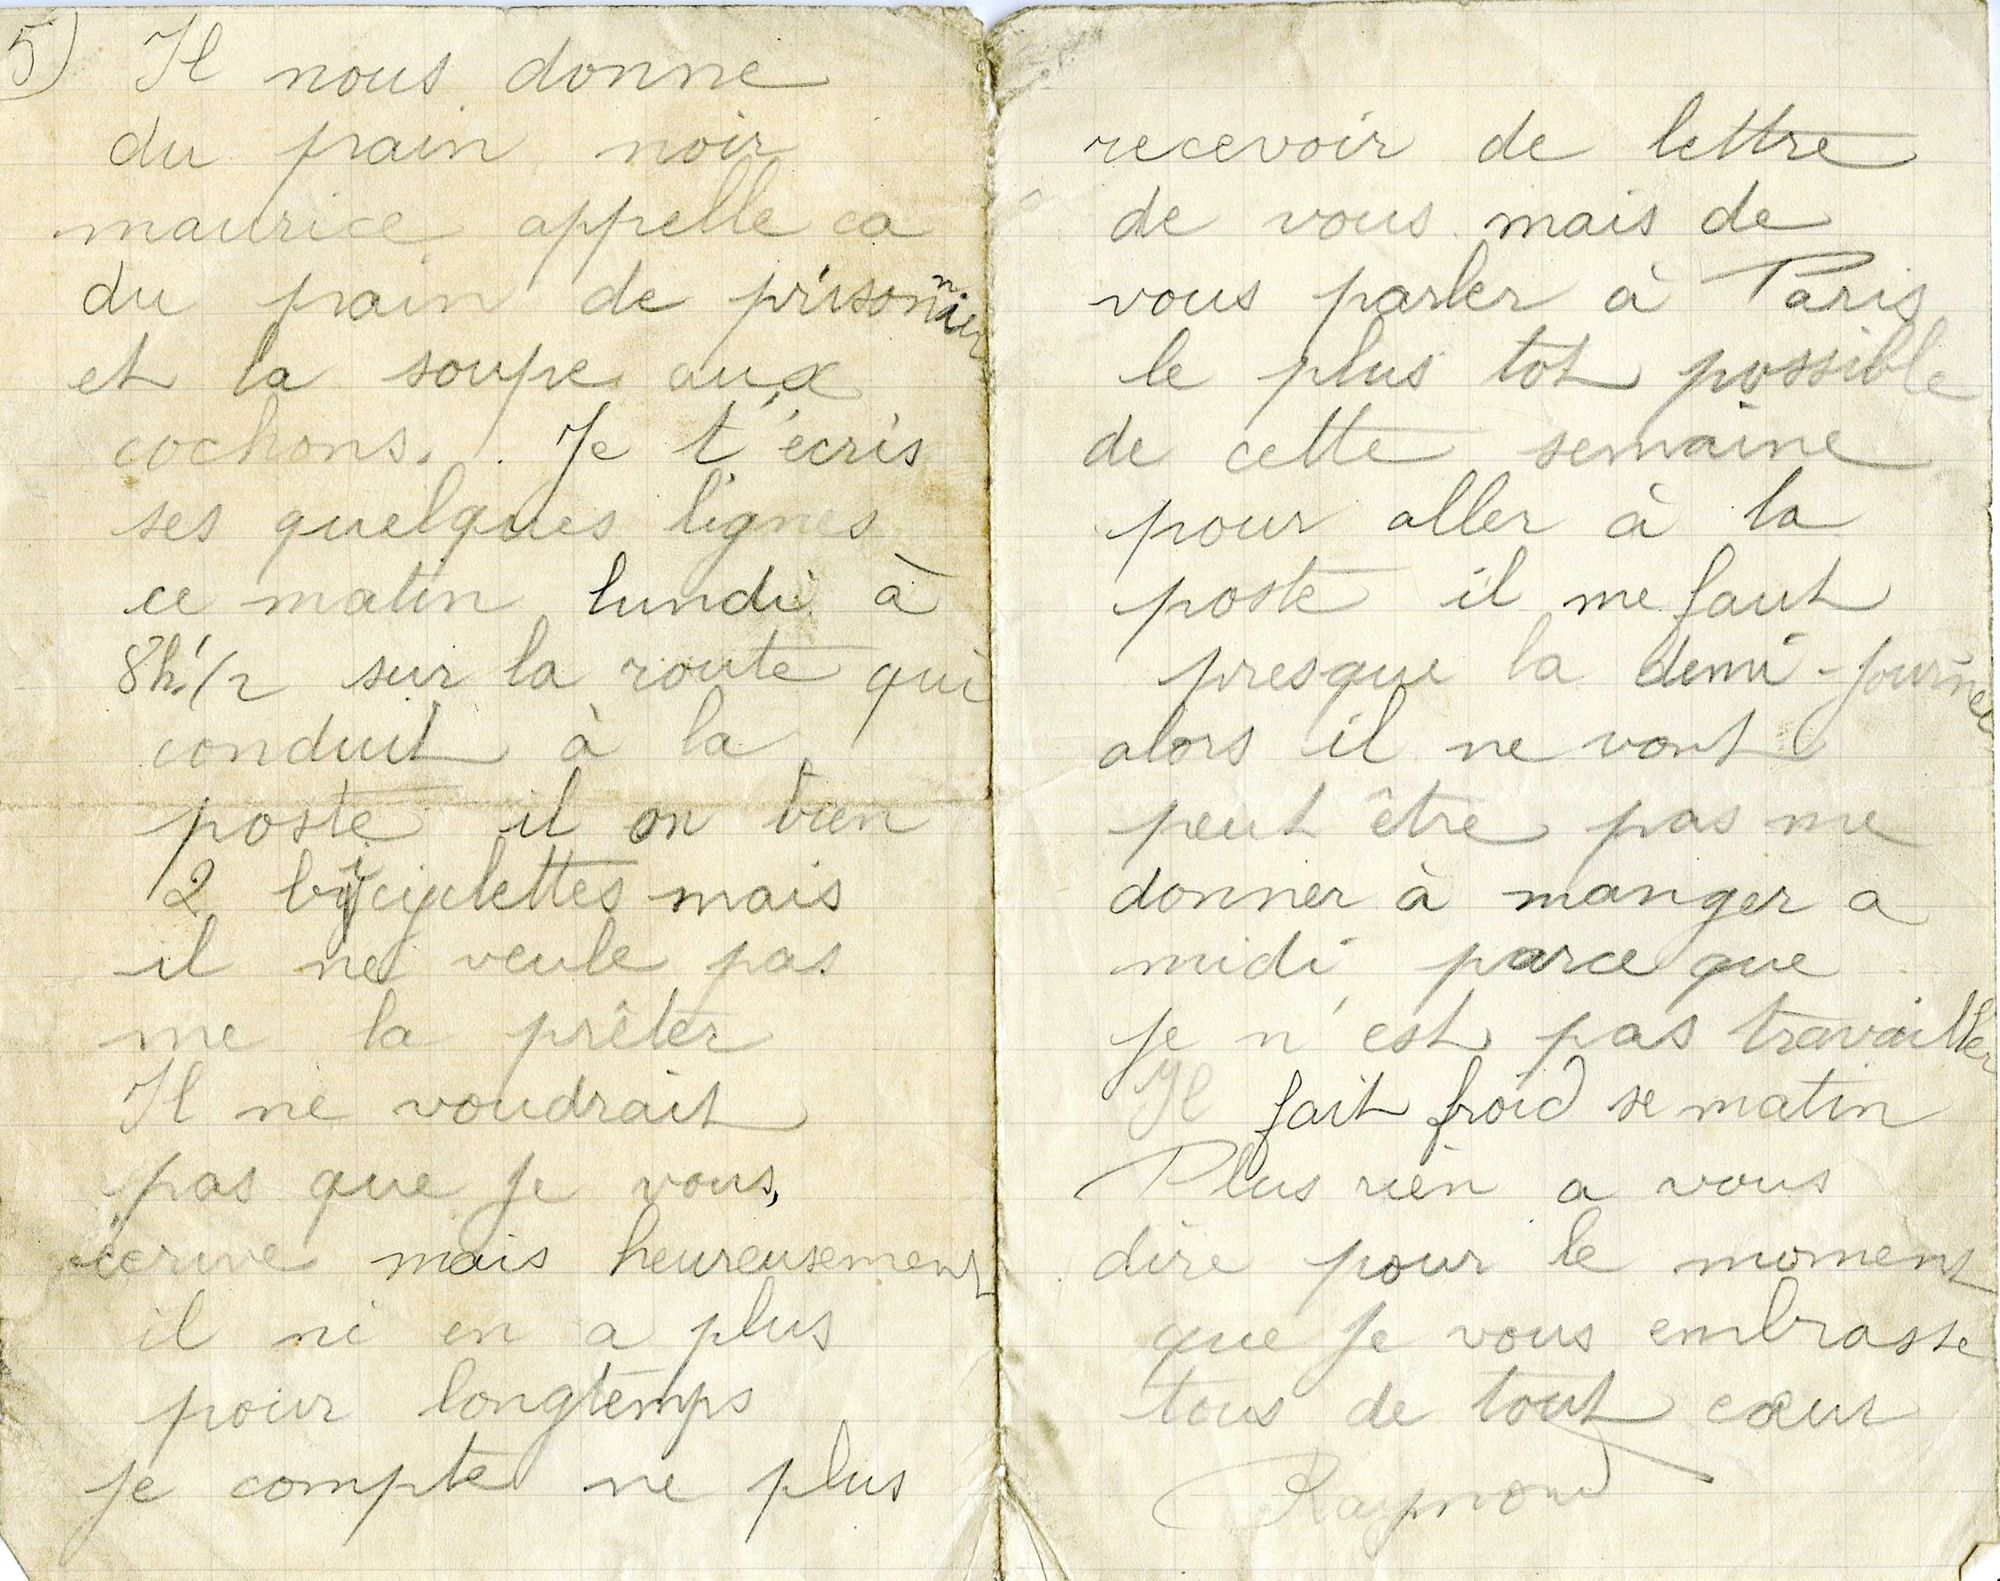 5) Il nous donne
du pain noir
maurice appelle ca
du pain de prisonnier
et la soupe aux
cochons. Je t'écris
ses quelques lignes
ce matin lundi à
8h 1/2 sur la route qui
conduit à la
poste il on bien
2 bicyclettes mais
il ne veule pas
me la prêter
Il ne voudrait
pas que je vous
écrive mais heureusement
il ni en a plus
pour longtemps
je compte ne plus
recevoir de lettre
de vous mais de
vous parler à Paris
le plus tot possible
de cette semaine
pour aller à la
poste il me faut
presque la demi-journée
alors il ne vont
peut être pas me
donner à manger a
midi parce que
je n'est pas travailler
Il fait froid se matin
Plus rien a vous
dire pour le moment
que je vous embrasse
tous de tout cœur
Raymond